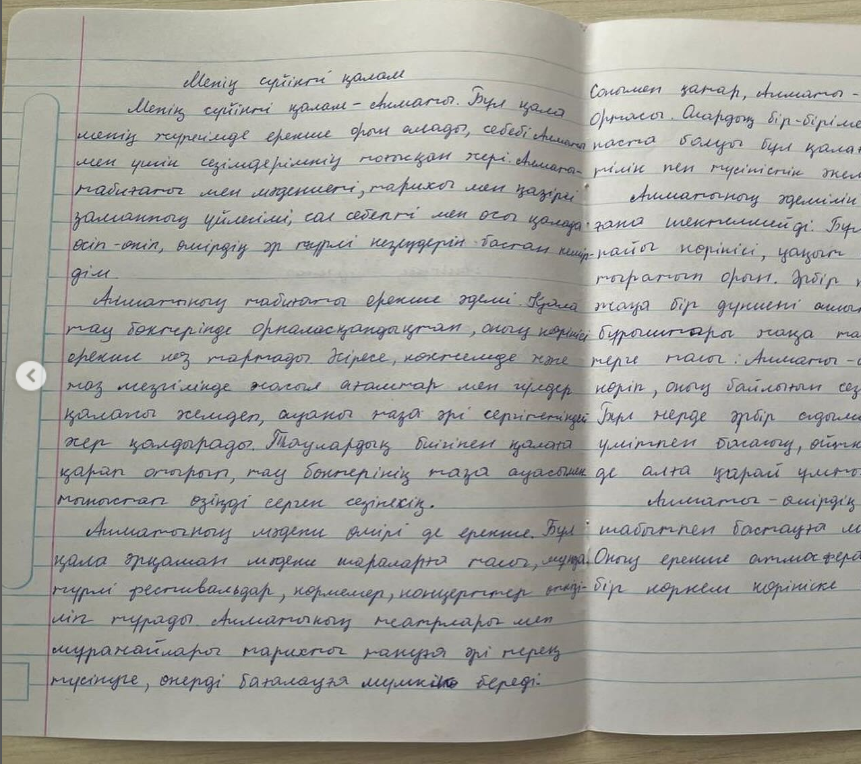 Менің сүйікті қалам
Менің сүйікті қалам - Алматы. Бұл қала
менің жүрегімде ерекше орын алады, себебі Алматы
мен үшін сезімдерімнің тоғысқан жері. Алматы-
табиғаты мен мәдениеті, тарихы мен қазіргі
заманның үйлесімі, сол себепті мен осы қалада
өсіп-өніп, өмірдің әр түрлі кезеңдерін бастан кешір-
дім.
Алматының табиғаты ерекше әдемі. Қала
тау бөктерінде орналасқандықтан, оның көрінісі
ерекше көз тартады. Әсіресе, көктемде және
жаз мезгілінде жасыл ағаштар мен гүлдер
қаланы жемдеп, ауаны таза әрі сергітетіндей
әсер қалдырады. Таулардың биігінен қалаға
қарап отырып, тау бөктерінің таза ауасымен
тыныстап өзіңді сергек сезінекің.
Алматының мәдени өмірі де ерекше. Бұл
қала әрқашан мәдени шараларға толы, мұнда
түрлі фестивальдар, көрмелер, концерттер өткізі-
ліп тұрады. Алматының театрлары мен
мұражайлары тарихты тануға әрі терең
түсінуге, өнерді бағалауға мүмкін береді.
Сонымен қатар, Алматы -
ортасы. Олардың бір-біріме
паста болуы бұл қалан
тілін пен түсіністік жем
Алматының әдемілін
ғана шектелмейді. Бұл
көрінісі, уақыт
орын. Әрбір
жаңа бір дүниені ашы
бұрыштары жаңа
терге толы. Алматы -
көріп, оның байлығын сез
Бұл жерде әрбір адым
үмітпен басасың, өйтк
де алға қарай ұмты
Алматы - өмірдің
шабытпен бастауға м
Оның ерекше атмосфера
бір көркем көрініске